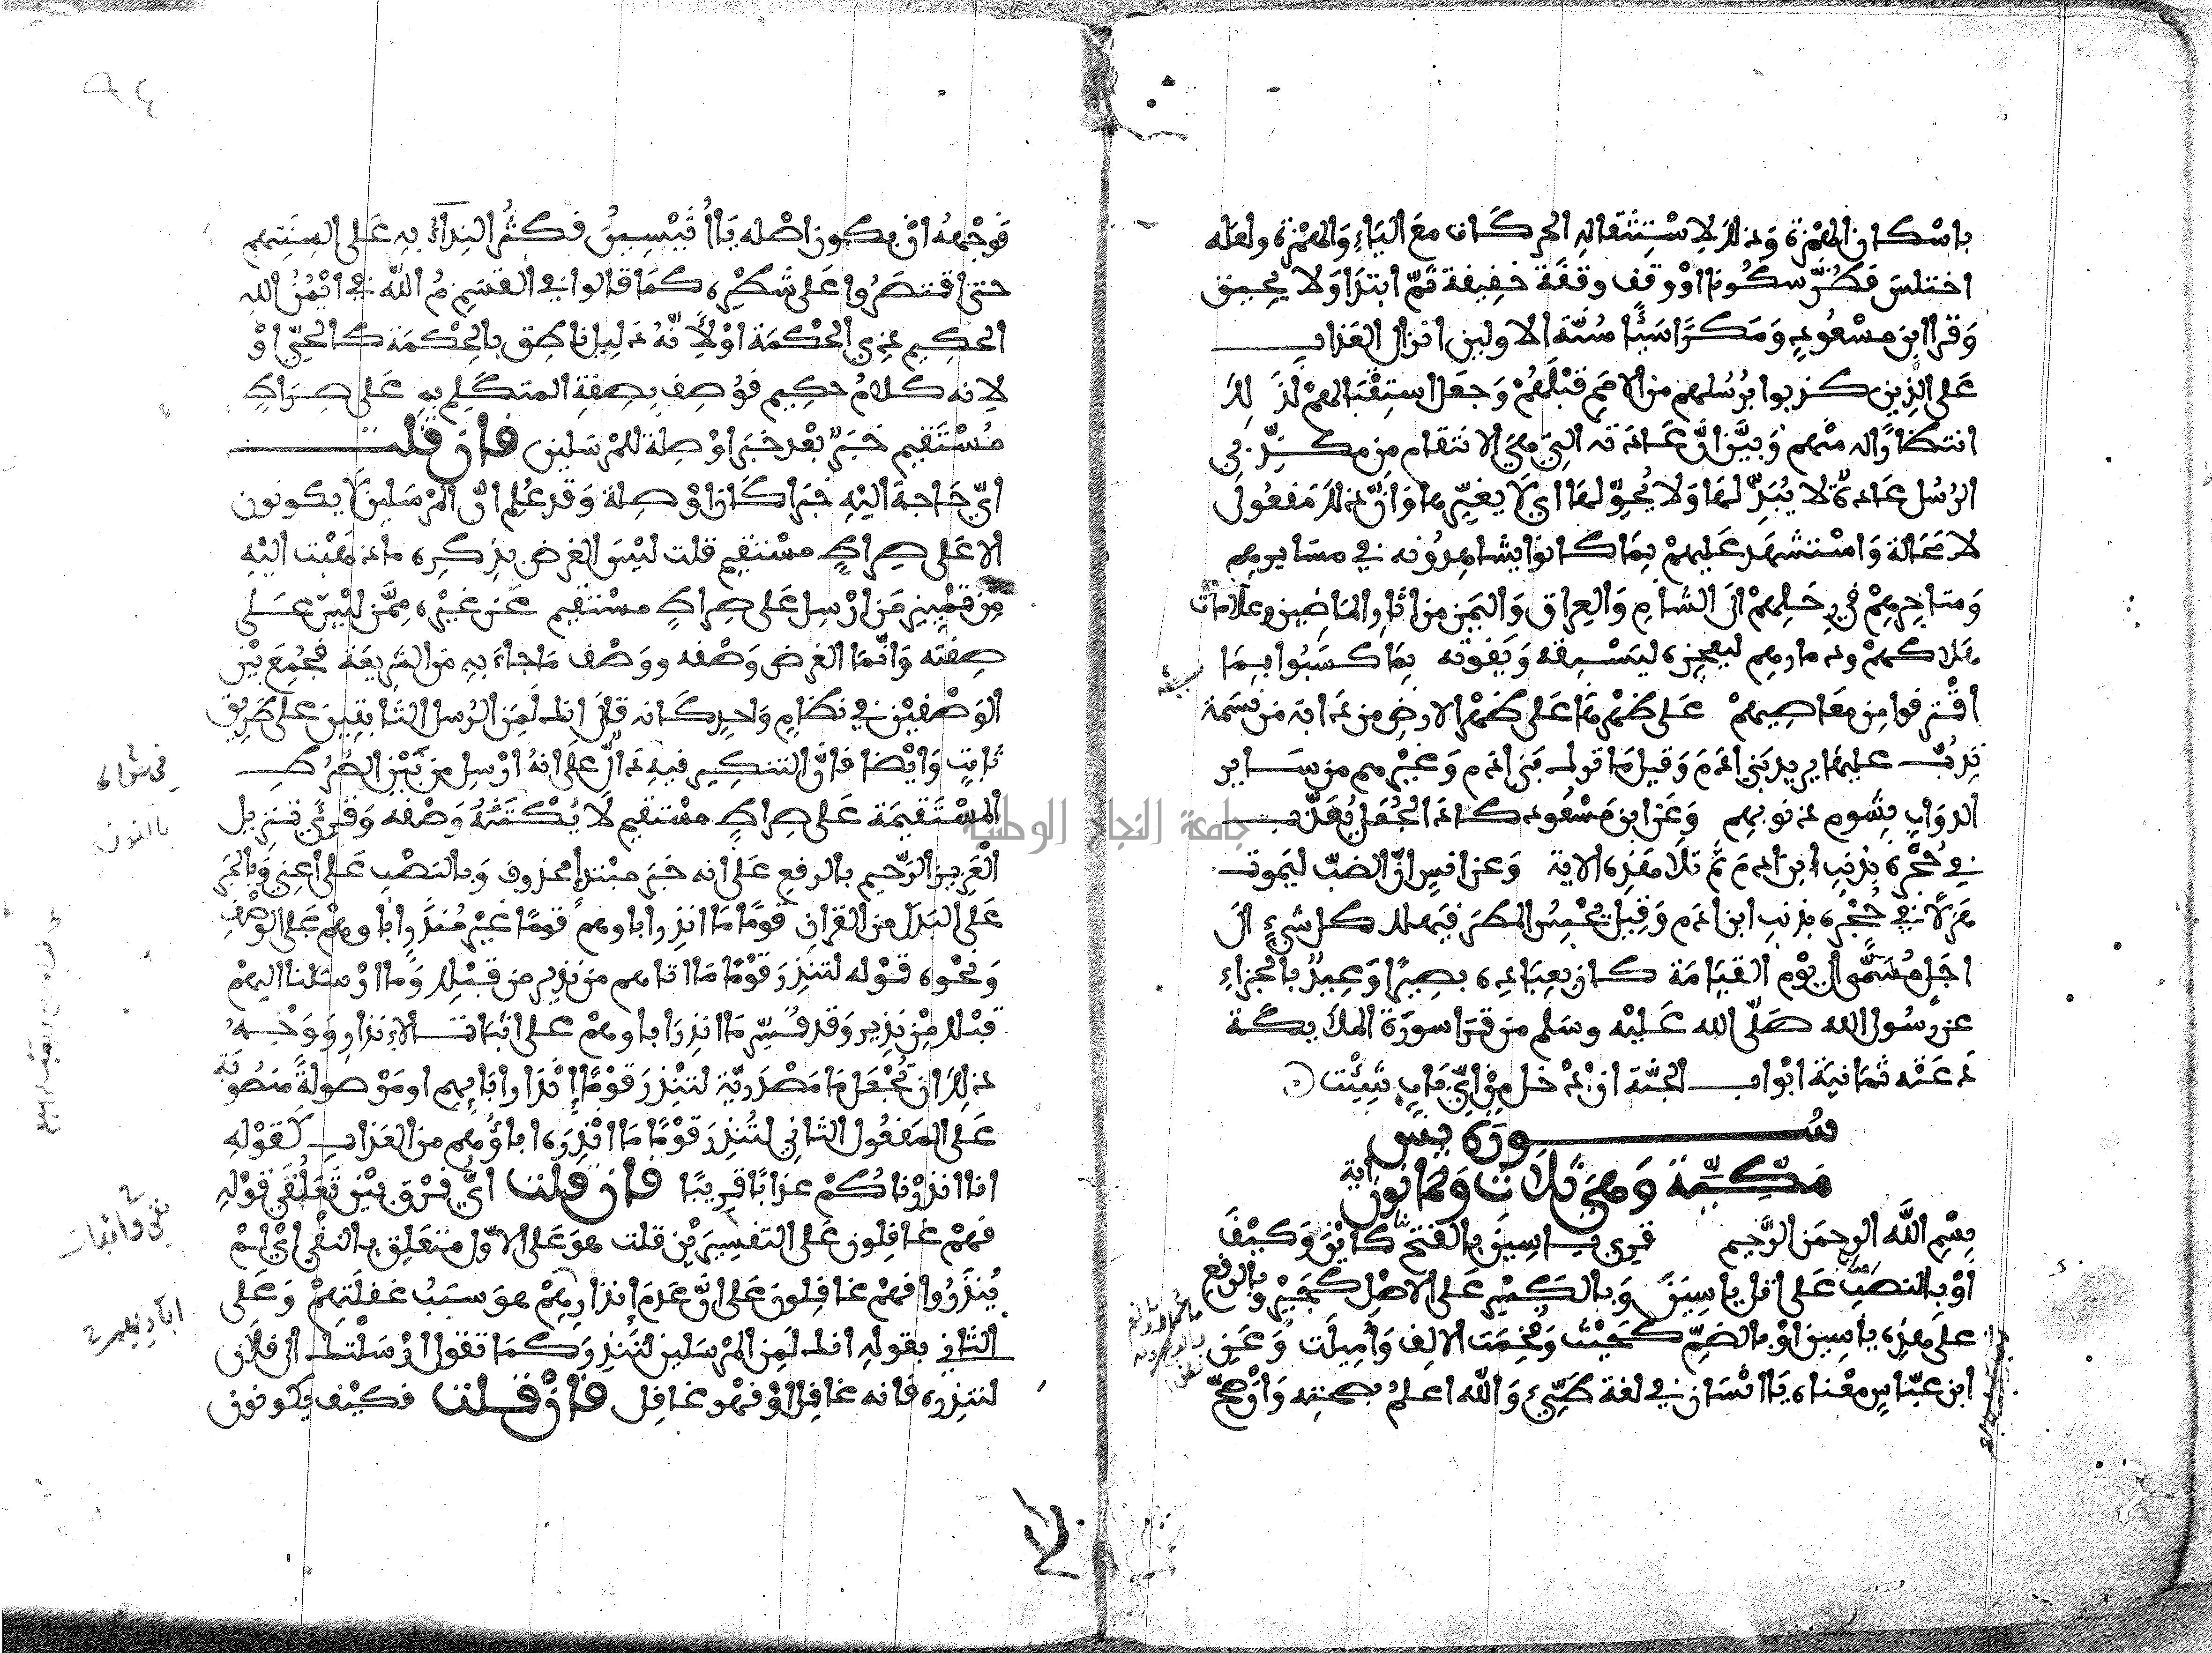 باسكان الهمزة وذلك لاستثقاله الحركات مع الياء والهمزة ولعله
اختلس فظن سكونا او وقف وقفة خفيفة ثم ابتدا ولا يحيق
وقرا ابن مسعود ومكرا سيئا سنة الاولين انزال العذاب
على الذين كذبوا برسلهم من الامم قبلهم وجعل استقبالهم لذلك
انتظارا له منهم وبين ان عادته التي هي الانتقام من مكذبي
الرسل عادة لا يبدلها ولا يحولها اي لا يغيرها وان ذلك مفعول
لا محالة وامتشهد عليهم بما كانوا يشاهدونه في مسايرهم
ومتاجرهم في رحلهم الى الشام والعراق واليمن من اثار الماضين وعلامات
هلاكهم ودمارهم ليعجزه ليسبقه ويفوته بما كسبوا بما
اقترفوا من معاصيهم على ظهرها على ظهر الارض من دابة من نسمة
تدب عليها يريد بني ادم وقيل ما قوله بني ادم وغيرهم من ساير
الدواب بشوم ذنوبهم وعن ابن مسعود كاد الجعل يعذب
في جحره بذنب ابن ادم ثم تلا هذه الاية وعن انس ان الضب ليموت
هزلا في جحره بذنب ابن ادم وقيل يحبس المطر فيهلك كل شيء الى
اجل مسمى الى يوم القيامة كان بعباده بصيرا وعيد بالجزاء
عن رسول الله صلى الله عليه وسلم من قرا سورة الملايكة
دعته ثمانية ابواب الجنة ان ادخل من اي باب شئت
سورة يس
مكية وهي ثلاث وثمانون اية
بسم الله الرحمن الرحيم قرى ياسين بالفتح كاين وكيف
او بالنصب على اتل ياسين وبالكسر على الاصل كجير وبالرفع
على هذه ياسين او بالضم كحيث وفخمت الالف واميلت وعن
ابن عباس معناه يا انسان في لغة طيئ والله اعلم بصحته وان صح
فوجهه ان يكون اصله يا انيسين فكثر النداء به على السنتهم
حتى اقتصروا على شطره كما قالوا في القسم م الله في ايمن الله
الحكيم ذي الحكمة او لانه دليل ناطق بالحكمة كالحي او
لانه كلام حكيم فوصف بصفة المتكلم به على صراط
مستقيم خبر بعد خبر او صلة للمرسلين فان قلت
اي حاجة اليه خبرا كان او صلة وقد علم ان المرسلين لا يكونون
الا على صراط مستقيم قلت ليس الغرض بذكره ما ذهبت اليه
من تمييز من ارسل على صراط مستقيم عن غيره ممن ليس على
صفته وانما الغرض وصفه ووصف ما جاء به من الشريعة فجمع بين
الوصفين في نظام واحد كانه قال انك لمن الرسل الثابتين على طريق
ثابت وايضا فان التنكير فيه دال على انه ارسل من بين الطرق
المستقيمة على صراط مستقيم لا يكتنه وصفه وقرئ تنزيل
العزيز الرحيم بالرفع على انه خبر مبتدا محذوف وبالنصب على اعني وبالجر
على البدل من القران قوما ما انذر اباوهم قوما غير منذر اباوهم على الوصف
ونحوه قوله لتنذر قوما ما اتاهم من نذير من قبلك وما ارسلنا اليهم
قبلك من نذير وقد فسر ما انذر اباوهم على اثبات الانذار ووجه
ذلك ان تجعل ما مصدرية لتنذر قوما انذار ابايهم او موصولة منصوبة
على المفعول الثاني لتنذر قوما ما انذره اباؤهم من العذاب كقوله
انا انذرناكم عذابا قريبا فان قلت اي فرق بين تعلقي قوله
فهم غافلون على التفسيرين قلت هو على الاول متعلق بالنفي اي لم
ينذروا فهم غافلون على ان عدم انذارهم هو سبب غفلتهم وعلى
الثاني بقوله انك لمن المرسلين لتنذر كما تقول ارسلتك الى فلان
لتنذره فانه غافل او فهو غافل فان قلت فكيف يكونون
نفي واثبات
جامعة النجاح الوطنية